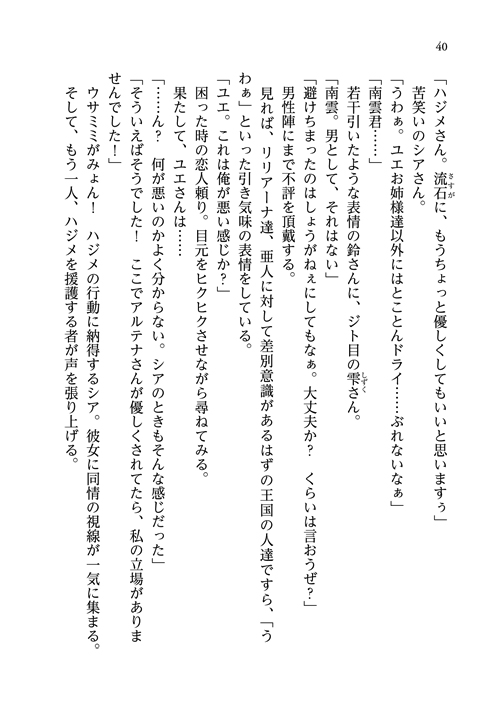 40
「ハジメさん。流石に、もうちょっと優しくしてもいいと思いますぅ」
苦笑いのシアさん。
「うわぁ。ユエお姉様達以外にはとことんドライ……ぶれないなぁ」
「南雲君……」
若干引いたような表情の鈴さんに、ジト目の雫さん。
「南雲。男として、それはない」
「避けちまったのはしょうがねぇにしてもなぁ。大丈夫か？　くらいは言おうぜ？」
男性陣にまで不評を頂戴する。
見れば、リリアーナ達、亜人に対して差別意識があるはずの王国の人達ですら、「う
わぁ」といった引き気味の表情をしている。
「ユエ。これは俺が悪い感じか？」
困った時の恋人頼り。目元をヒクヒクさせながら尋ねてみる。
果たして、ユエさんは……
「……ん？　何が悪いのかよく分からない。シアのときもそんな感じだった」
「そういえばそうでした！　ここでアルテナさんが優しくされてたら、私の立場がありま
せんでした！」
ウサミミがみょん！　ハジメの行動に納得するシア。彼女に同情の視線が一気に集まる。
そして、もう一人、ハジメを援護する者が声を張り上げる。